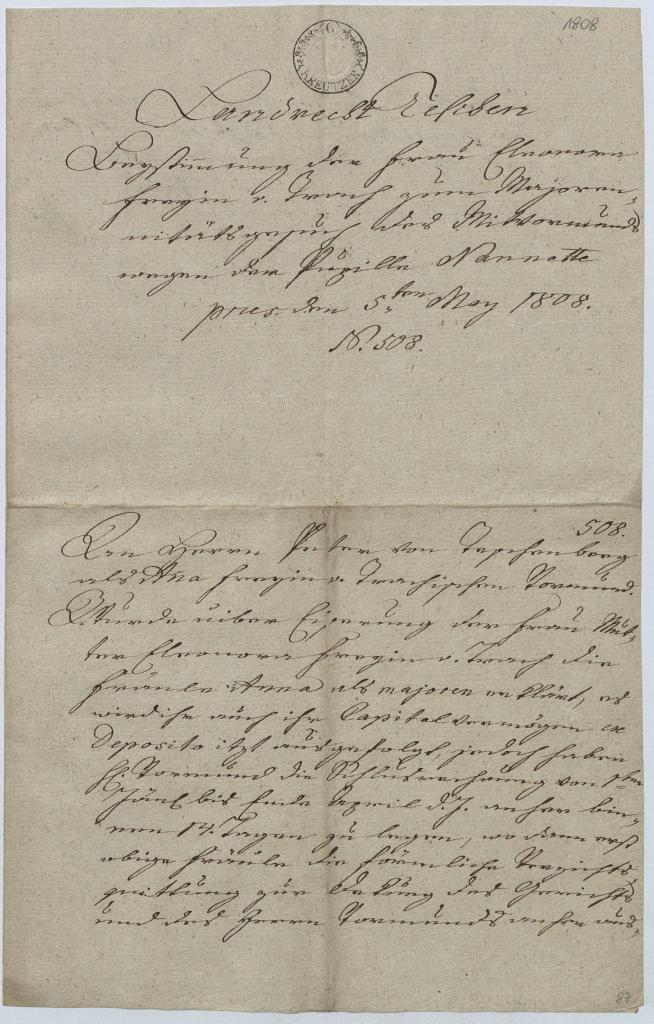 1808
6
KREUTZER
Landrecht Teschen
Beystimmung der Frau Eleonora
Freyin v. Trach zum Majoren-
nitätsgesuch des Mitvormunds
wegen der Pupille Nannette
pres. den 5ten May 1808.
N. 508.
508.
An Herrn Peter von Teschenberg
als Anna Freyin v. Trachischen Vormund.
Wurde uiber Eiserung der Frau Mut-
ter Eleonora Freyin v. Trach die
Fräule Anna als majoren erklärt, es
wird ihr auch ihr Capitalvermögen ex
Deposito itzt ausgefolgt, jedoch haben
H. Vormund die Schlusrechnung von 1ten
bis Ende April d. J. anher bin-
nen 14. Tagen zu legen, wo dann erst
obige Fräule die förmliche Verzichts
quittung zur Dekung des Gerichts
und des Herrn Vormunds anher aus-
87